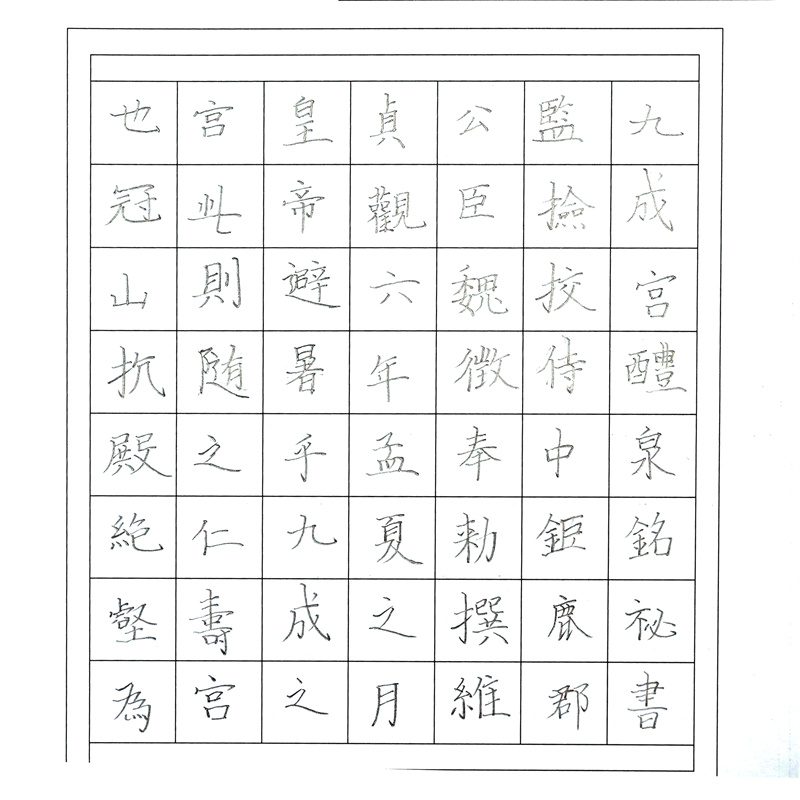 九成宮醴泉銘祕書
監撿挍侍中鉅鹿郡
公臣魏徵奉勑撰維
貞觀六年孟夏之月
皇帝避暑乎九成之
宮此則隨之仁壽宮
也冠山抗殿絶壑為